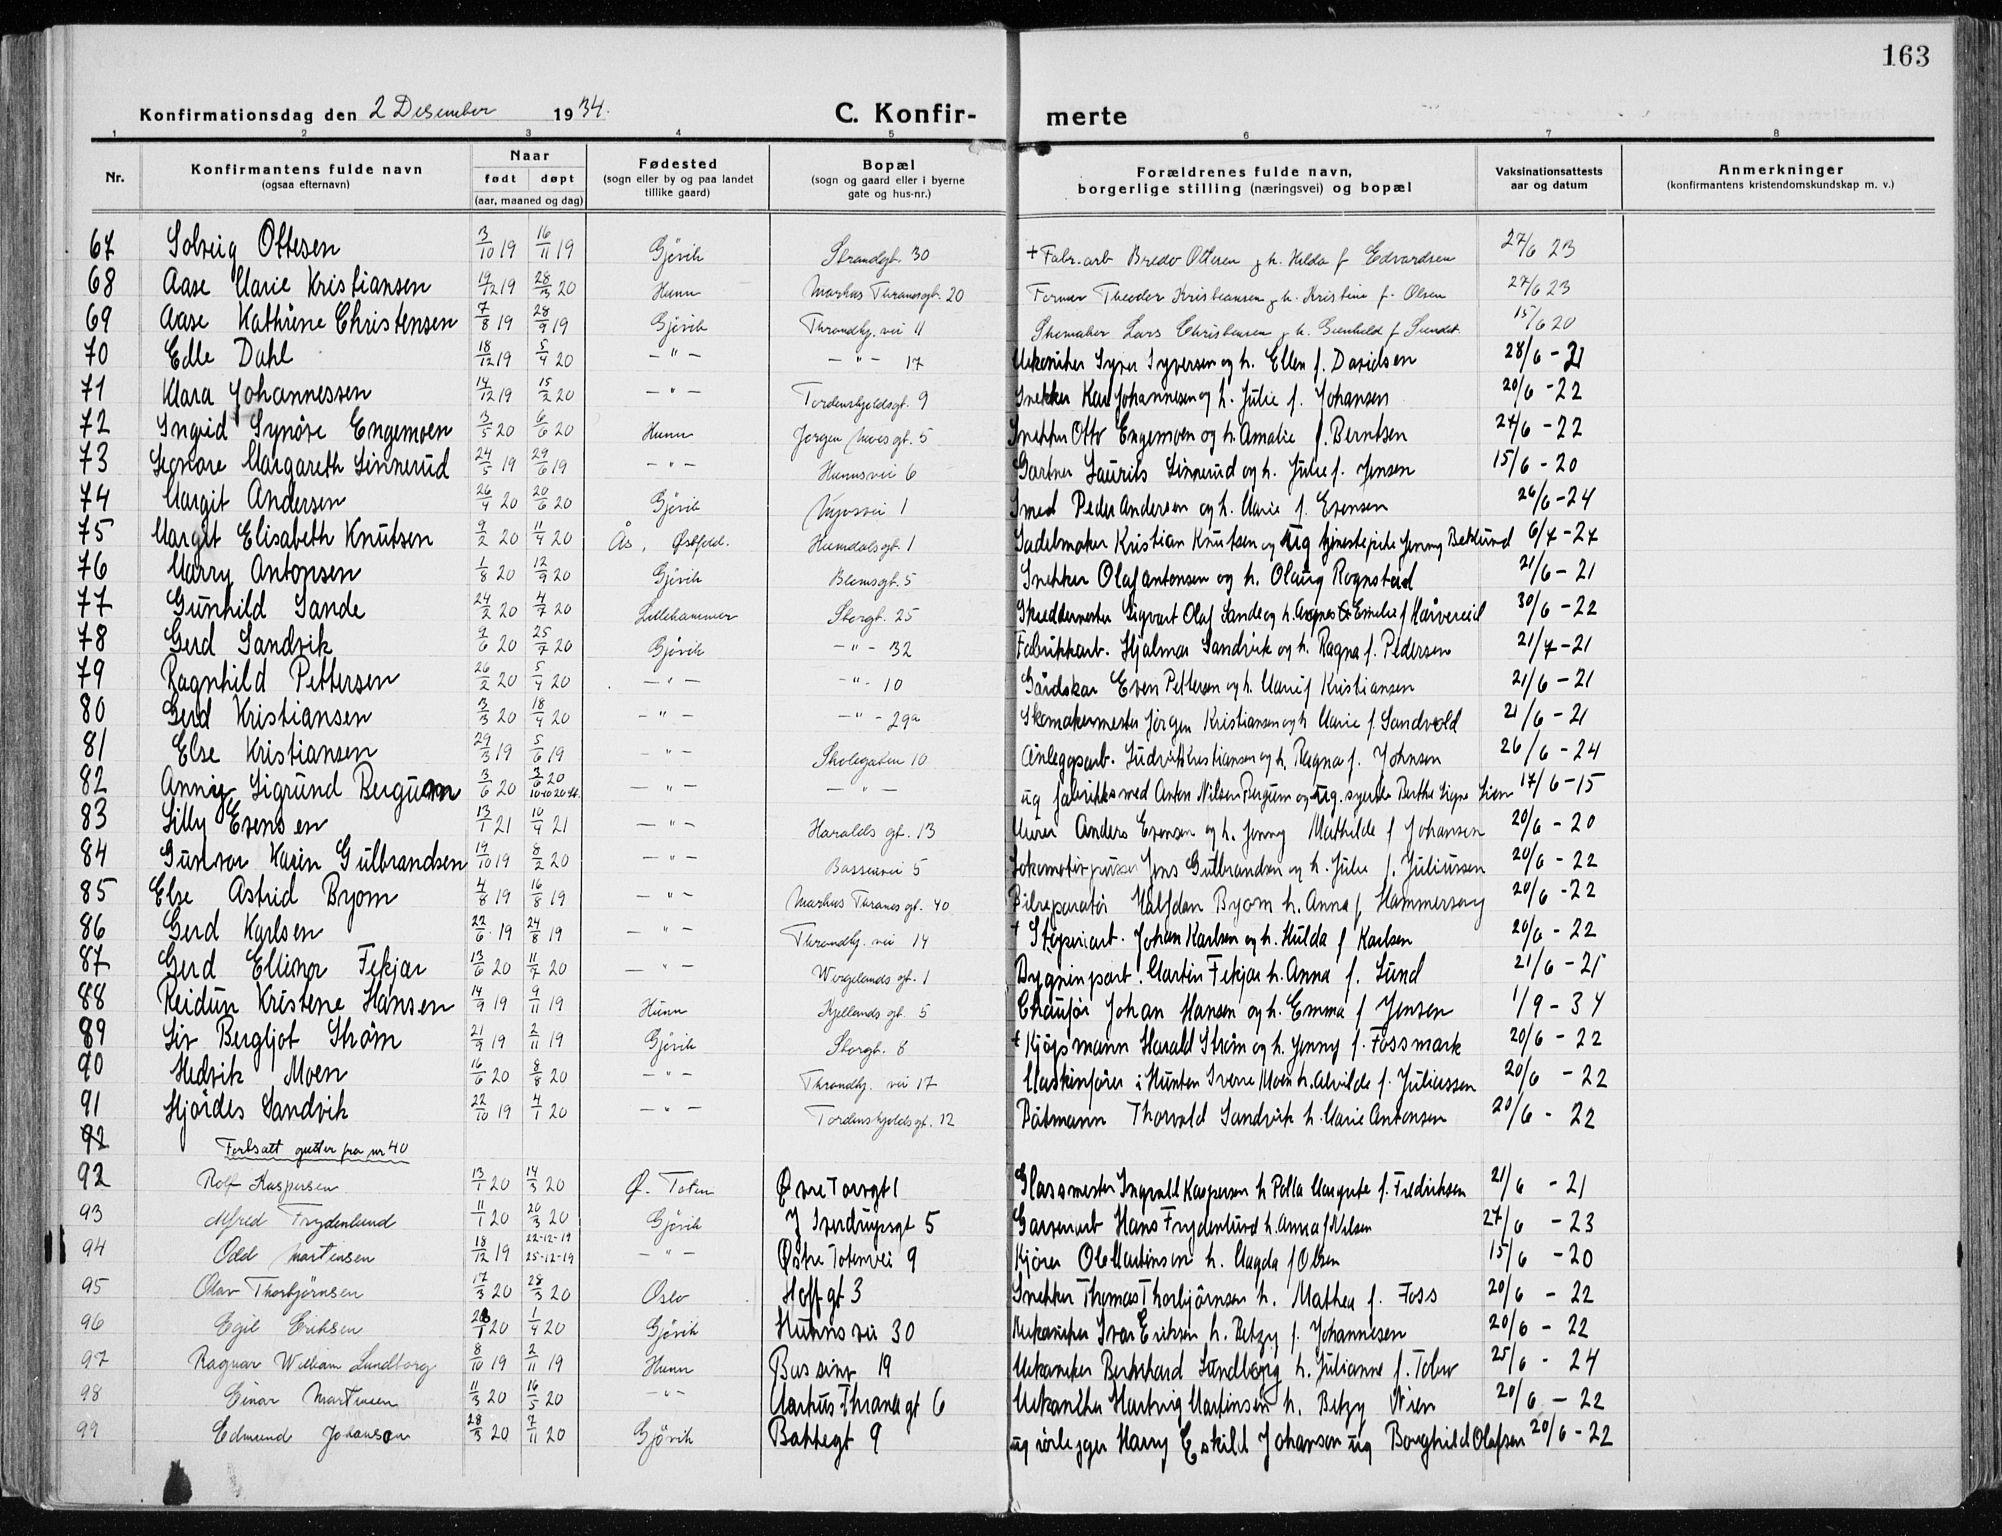 163
Konfirmationsdag den 2 Desember 1934. C. Konfir- merte
1 2 3 4 5 6 7 8
Nr. Konfirmantens fulde navn (ogsaa efternavn) Naar født døpt (aar, maaned og dag) Fødested (sogn eller by og paa landet tillike gaard) Bopæl (sogn og gaard eller i byerne gate og hus-nr.) Forældrenes fulde navn, borgerlige stilling (næringsvei) og bopæl Vaksinationsattests aar og datum Anmerkninger (konfirmantens kristendomskundskap m. v.)
67 Solveig Ottesen 3/10 19 16/11 19 Gjøvik Strandgt. 30 + Fabr. arb Bredo Ottesen g h. Hilda f Edvardsen 27/6 23
68 Aase Marie Kristiansen 19/12 19 28/3 20 Hunn Markus Thranesgt. 20 Former Theodor Kristiansen g h. Kristine f. Olsen 27/6 23
69 Aase Kathrine Christensen 7/8 19 28/9 19 Gjøvik Throndhj. vei 11 Skomaker Lars Christensen g h. Gunhild f Sundet 15/6 20
70 Edle Dahl 18/12 19 5/4 20 — " — — " — 17 Mekaniker Syver Syversen og h. Ellen f. Davidsen 28/6 - 21
71 Klara Johannessen 14/12 19 15/2 20 — " — Tordenskjoldsgt. 9 Snekker Karl Johannesen og h. Julie f. Johansen 20/6 - 22
72 Ingrid Synøve Engemoen 3/5 20 6/6 20 Hunn Jørgen Moes gt. 5 Snekker Otto Engemoen og h. Amalie f. Berntsen 27/6 - 22
73 Leonore Margareth Linnerud 24/5 19 29/6 19 — " — Hunnsvei 6 Gartner Laurits Linnerud og h. Julie f. Jensen 15/6 - 20
74 Margit Andersen 26/4 20 20/6 20 Gjøvik 1 Smed Peder Andersen og h. Marie f. Evensen 26/6 - 24
75 Margit Elisabeth Knutsen 9/2 20 11/4 20 Ås, Østfold. Hunndalsgt. 1 Sadelmaker Kristian Knutsen og ug tjenestepike Jenny Beklund 6/7 - 27
76 Marry Antonsen 1/8 20 12/9 20 Gjøvik Blomsgt. 5 Snekker Olaf Antonsen og h. Olaug Rognstad 21/6 - 21
77 Gunhild Sande 24/2 20 4/7 20 Lillehammer Storgt. 25 Skreddermester Sigvart Olaf Sande og h. Agnes Emelie f 30/6 - 22
78 Gerd Sandvik 9/6 20 25/7 20 Gjøvik — " — 32 Fabrikkarb. Hjalmar Sandvik og h. Ragna f. Pedersen 21/7 - 21
79 Ragnhild Pettersen 26/2 20 5/4 20 — " — — " — 10 Gårdskar Even Pettersen og h. Marie f Kristiansen 21/6 - 21
80 Gerd Kristiansen 3/3 20 18/4 20 — " — — " — 29a Skomakermester Jørgen Kristiansen og h Marie f. Sandvold 21/6 - 21
81 Else Kristiansen 29/3 19 5/6 19 — " — Skolegaten 10 Anleggsarb. Ludvik Kristiansen og h. Ragna f. Johnsen 26/6 - 24
82 Annie Sigrund Bergum 3/6 20 — " — — " — ug fabrikksmed Anton Nilsen Bergum og ug. syerske Berthe Signe Lien 17/6 - 15
83 Lilly Evensen 13/1 21 10/4 21 — " — Haralds gt. 13 Murer Anders Evensen og h. Jenny Mathilde f Johansen 20/6 - 20
84 Gunvor Karin Gulbrandsen 19/10 19 8/2 20 — " — Bassenvei 5 Lokomotivpusser Jens Gulbrandsen og h. Julie f. Juliussen 20/6 - 22
85 Else Astrid Byom 4/8 19 16/8 19 — " — Markus Thranes gt. 40 Bilreparatør Halfdan Byom h. Anna f. Hammerseng 20/6 - 22
86 Gerd Karlsen 22/6 19 24/8 19 — " — Throndhj. vei 14 + Støperiarb. Johan Karlsen og h. Hulda f Karlsen 20/6 - 22
87 Gerd Ellinor Fekjar 13/6 20 11/7 20 — " — Wergelands gt. 1 Martin Fekjar h. Anna f. Lund 21/6 - 21
88 Reidun Kristene Hansen 14/9 19 9/11 19 Hunn Kjellands gt. 5 Chaufør Johan Hansen og h. Emma f Jensen 1/9 - 34
89 Liv Bergljot Strøm 21/9 19 2/11 19 Gjøvik Storgt. 8 + Kjøpmann Harald Strøm og h. Jenny f. Fossmark 20/6 - 22
90 Hedvik Moen 16/6 20 8/8 20 — " — Throndhj. vei 17 Maskinfører i Hunton Sverre Moen h. Alvilde f. Juliussen 20/6 - 22
91 Hjørdes Sandvik 22/10 19 4/1 20 — " — Tordenskjoldsgt. 12 Båtmann Thorvald Sandvik h. Marie Antonsen 20/6 - 22
92
Fortsatt gutter fra nr 40
92 Rolf Kaspersen 13/1 20 14/3 20 Ø. Toten Øvre Torvgt 1 Glassmester Ingvald Kaspersen h Polla Margrete f. Fredriksen 21/6 - 21
93 Alfred Frydenlund 11/1 20 20/3 20 Gjøvik J Sverdrupsgt 5 Garverarb Hans Frydenlund h. Anna f Nilsen 27/6 - 23
94 Odd Martinsen 18/12 19 22-12-19 25-12-19 — " — Østre Totenvei 9 Kjører Ole Martinsen h. Magda f Olsen 15/6 - 20
95 Olav Thorbjørnsen 17/3 20 28/3 20 Oslo Hoff gt 3 Snekker Thomas Thorbjørnsen h. Mathea f. Foss 20/6 - 22
96 Egil Eriksen 1/4 20 Gjøvik Hunns vei 30 Mekaniker Ivar Eriksen h. Betzy f. Johannesen 20/6 - 22
97 Ragnar William Lundborg 8/10 19 2/11 19 Hunn 19 Mekaniker Bernhard Lundborg h. Julianne f. 25/6 - 24
98 Einar Martinsen 11/3 20 16/5 20 — " — Markus Thrane gt 6 Mekaniker Hartvig Martinsen h. Betzy Wien 20/6 - 22
99 Edmund Johanson 28/3 20 7/11 20 Gjøvik Bakkegt 9 ug rørlegger Harry Eskild Johansen ug Borghild Olafsen 20/6 - 22